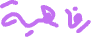 رفاهية